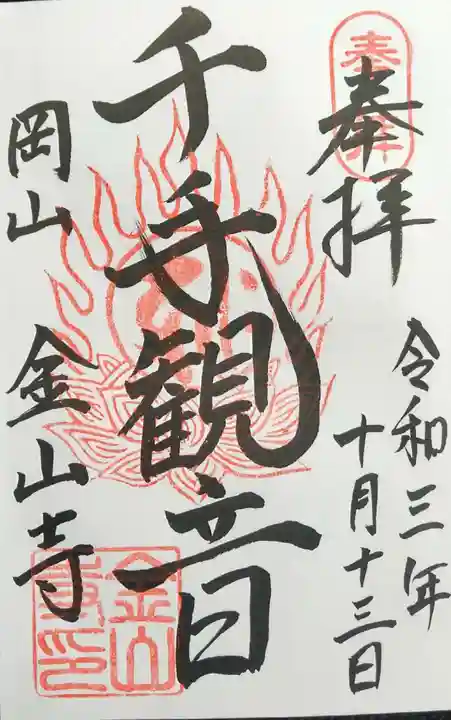 奉拝
奉拝
令和三年
十月十三日
千手観音
岡山 金山寺
金山寺印